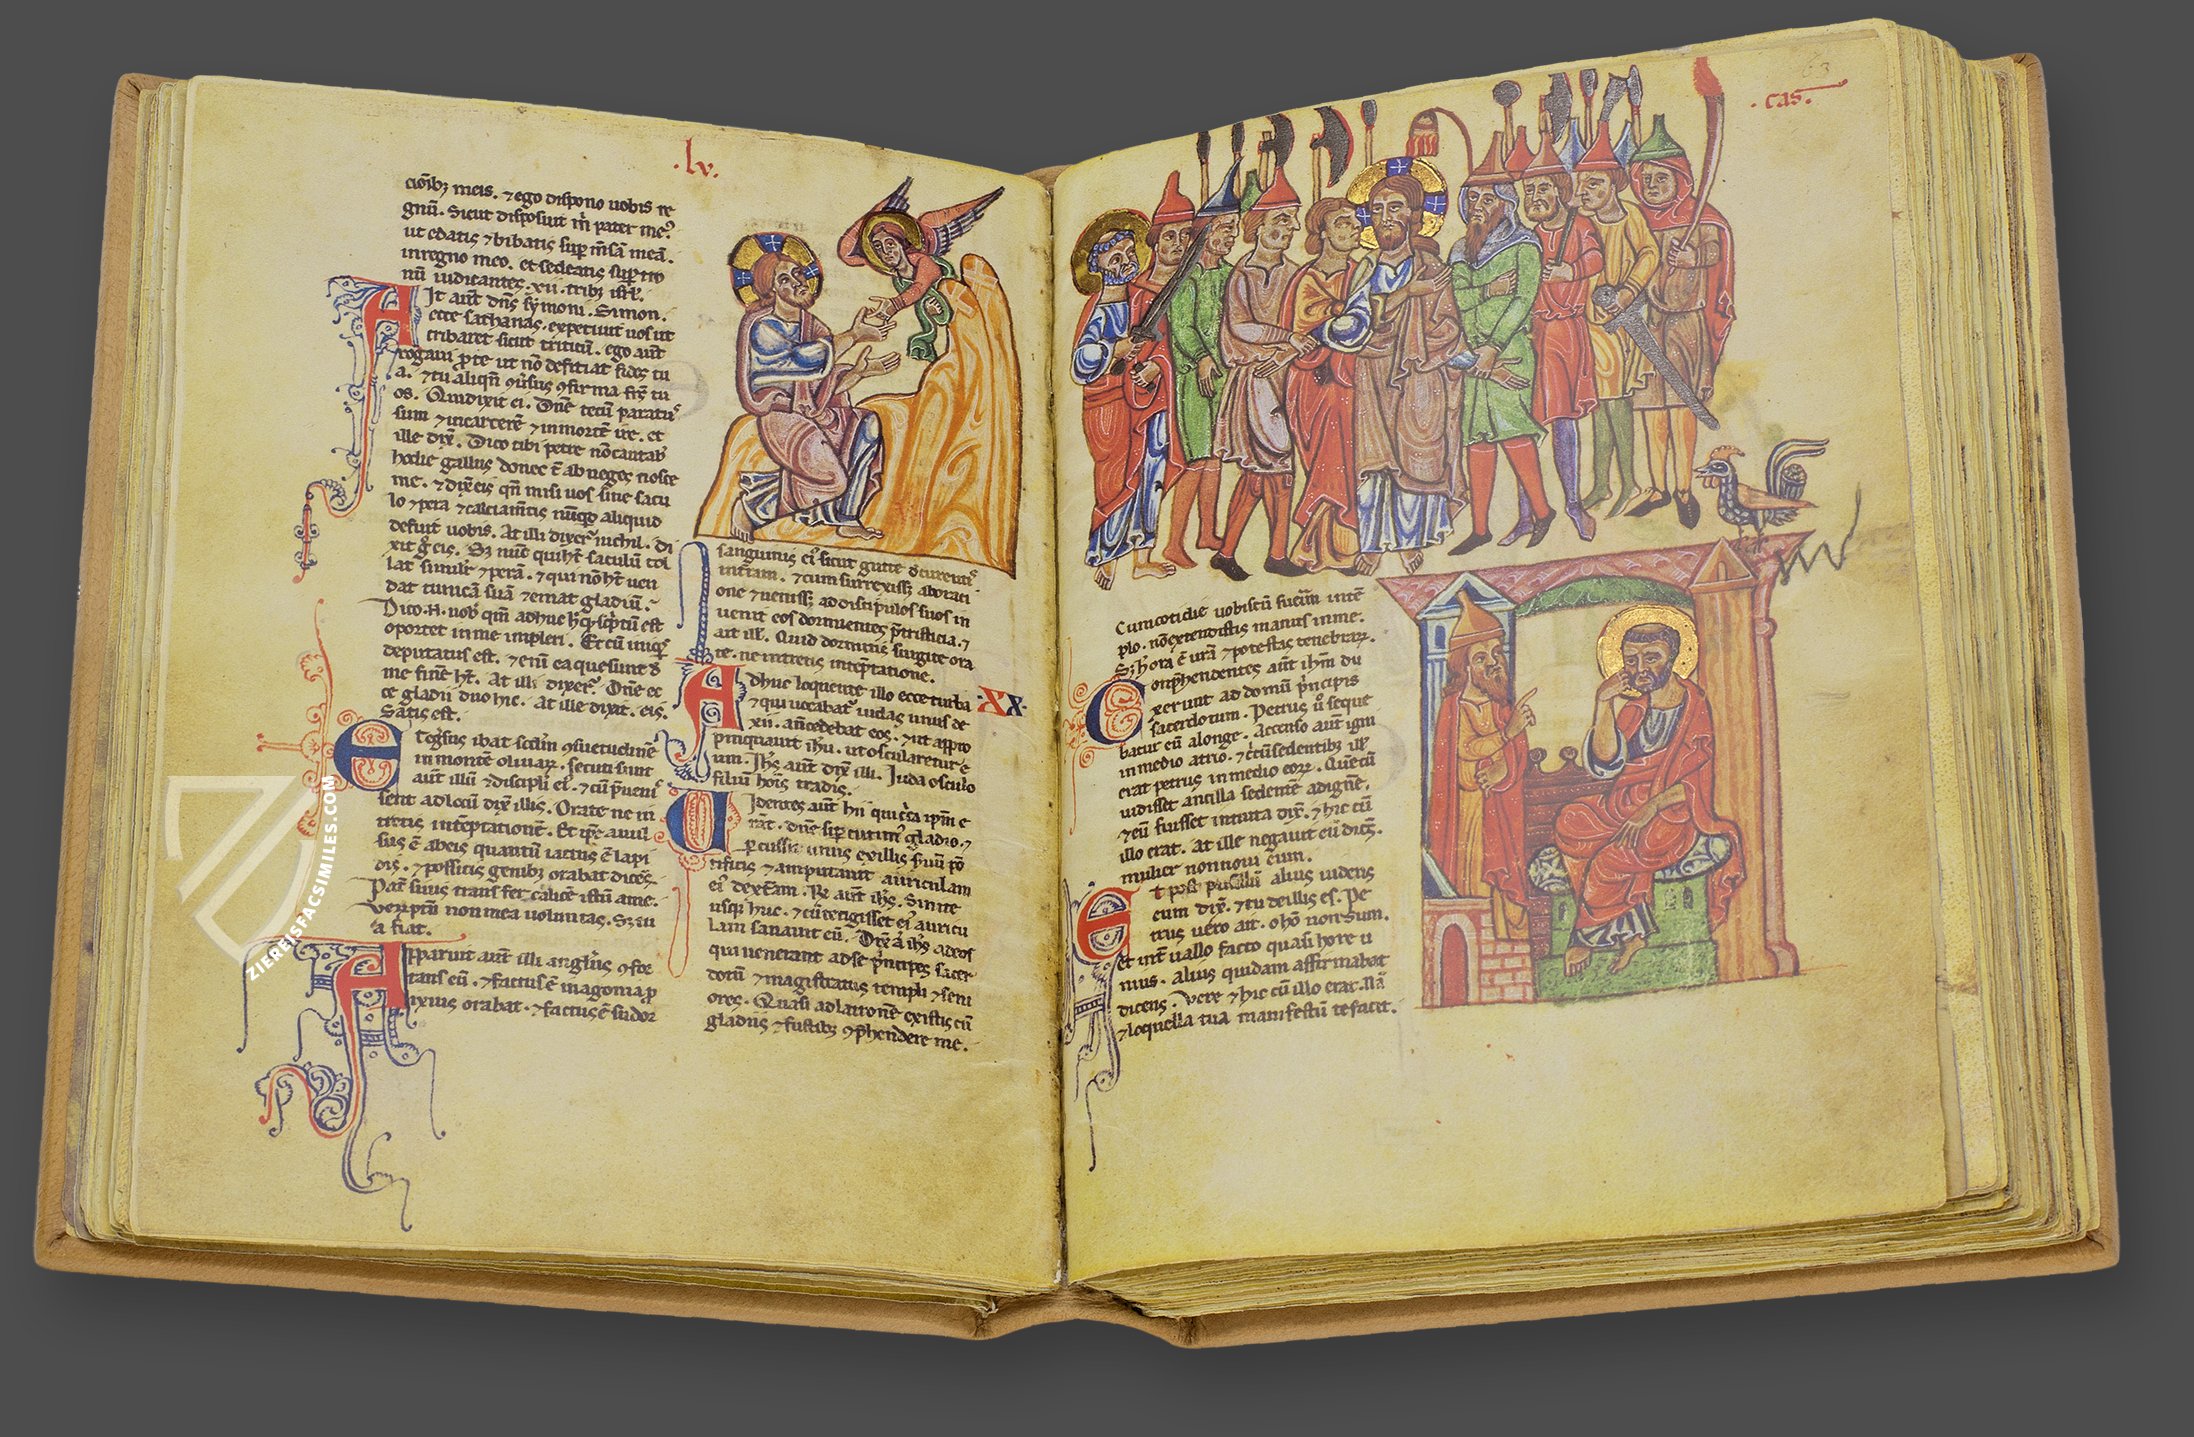 .lv.
cioib; meis. ⁊ ego dispono uobis re
gnū. Sicut disposuit m̄ pater me⁹.
ut edatis ⁊ bibatis sup m̄sā meā.
in regno meo. et sedeatis sup tro
nū iudicantes .xii. trib; isrl̄.
Ait aūt dn̄s symoni. Simon.
ecce sathanas. expetiuit uos ut
cribaret sicut triticū. ego aūt
rogaui p te ut nō deficiat fides tu
a. ⁊ tu aliqn̄ ꝯuersus ꝯfirma fr̄s tu
os. Qui dixit ei. Dn̄e tecū paratus
sum ⁊ in carcerē ⁊ in mortē ire. et
ille dix̄. Dico tibi petre nō cantab
hodie gallus donec t̄ ab neges nosse
me. ⁊ dix̄ eis qn̄ misi uos sine sacu
lo ⁊ pera ⁊ calciam̄tis nūqd aliquid
defuit uobis. At illi dixer nichil. di
xit g eis. S; nūc qui ht saculū tol
lat similr ⁊ perā. ⁊ qui nō ht uen
dat tunicā suā ⁊ emat gladiū.
Dico .n. uob qm̄ adhuc hoc sc̄ptū est
oportet in me impleri. Et cū iniq̄s
deputatus est. ⁊ enī ea que sunt d̄
me finē ht. At illi dixer. Dn̄e ec
ce gladii duo hic. At ille dixit. eis.
Satis est.
Et egsus ibat scdm ꝯsuetudinē
in montē oliuaꝝ. secuti sunt
aūt illū ⁊ discipli ei⁹. ⁊ cū pueni
sent ad locū dix̄ illis. Orate ne in
tretis in tēptationē. Et ipe auul
sus ē ab eis quantū iactus ē lapi
dis. ⁊ positis genib; orabat dices.
Pat̄ si uis transfer calicē istū a me.
Verūptū non mea uoluntas. S; tu
a fiat.
Apparuit aūt illi anglus ꝯfor
tans eū. ⁊ factus ē in agonia p
lixius orabat. ⁊ factus ē sudor
sanguinis ei⁹ sicut gutte decurentis
in t̄ram. ⁊ cum surrexiss; ab orati
one ⁊ ueniss; ad discipulos suos in
uenit eos dormientes p̄ tristicia. ⁊
ait ill. Quid dormitis surgite ora
te. ne intretis in tēptatione.
Adhuc loquente illo ecce turba .XX.
⁊ qui uocabat iudas unus de
.xii. an̄cedebat eos. ⁊ ut appro
pinquauit ihu. ut oscularetur e
um. Ihs aūt dix̄ illi. Iuda osculo
filiū hois tradis.
Videntes aūt hii qui c̄ca ipm e
rāt. dn̄e si pcutim⁹ gladio. ⁊
pcussit unus ex illis suū po
tificis ⁊ amputauit auriculam
ei⁹ dext̄am. R aūt ihs. Sinite
usq; huc. ⁊ cū tetigisset ei⁹ auricu
lam sanauit eū. Dix̄ a ihs ad eos
qui uenerant ad se p̄ncipes sacer
dotū ⁊ magistratus templi ⁊ seni
ores. Quasi ad latronē existis cū
gladiis ⁊ fustib; ꝯphendere me.
63
.cas.
Cum cotidie uobiscū fueim in tē
plo. nō extendistis manus in me.
S; h̄ hora ē urā ⁊ potestas tenebraꝝ.
Conphendentes aūt ihm du
xerunt ad domū p̄ncipis
sacerdotum. Petrus u̇o seque
batur eū a longe. Accenso aūt igni
in medio atrio. ⁊ c̄cūsedentib; ill
erat petrus in medio eoꝝ. Que cū
uidisset ancilla sedentē ad ignē.
⁊ eū fuisset intuita dix̄. ⁊ hic cū
illo erat. At ille negauit eū dices.
mulier non noui eum.
Et post pusillū alius uidens
eum dix̄. ⁊ tu de illis es. Pe
trus uero ait. o hō non sum.
et int̄uallo facto quasi hore u
nius. alius quidam affirmabat
dicens. Vere ⁊ hic cū illo erat. Nā
⁊ loquella tua manifestū te facit.
ZIEREISFACSIMILES.COM